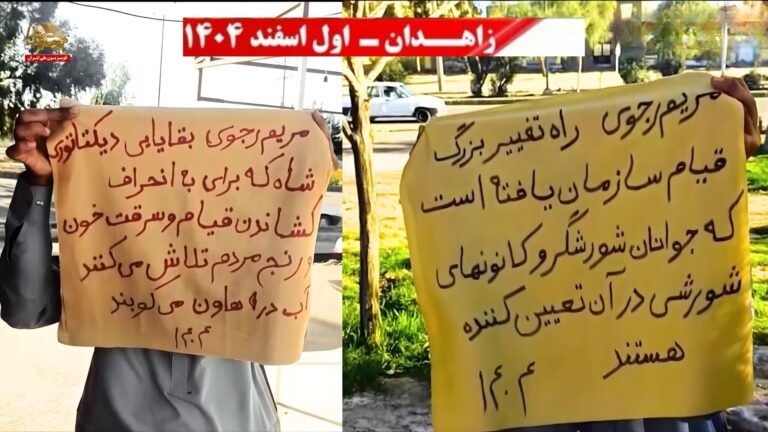 تلویزیون ملی ایران
زاهـدان ـ اول اسفند ۱۴۰۴
مریم رجوی بقایایی دیکتاتوری
شاه که برای به انحراف
کشاندن قیام و سرقت خون
و رنج مردم تلاش می کنند
آب در هاون می کوبند
مریم رجوی راه تغییر بزرگ
قیام سازمان یافته است
که جوانان شورشگر و کانونهای
شورشی در آن تعیین کننده
هستند